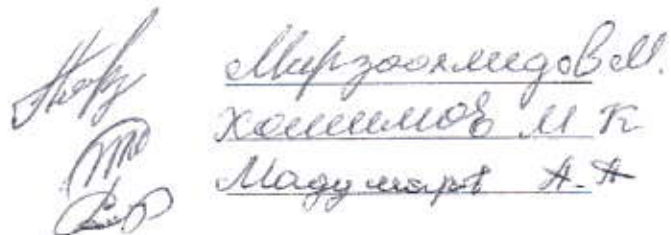 Мирзоахмедов М.
Хошимов М К
Мадумаров А.А